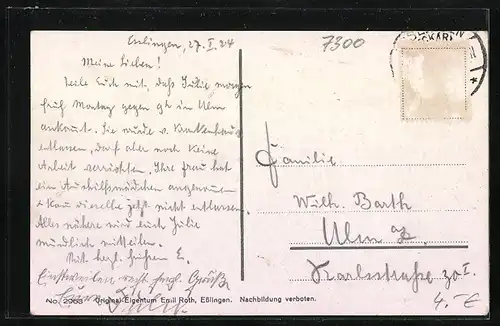 Esslingen, 27. I. 24
7300
Meine Lieben!
Teile Euch mit, daß Julie morgen
früh Montag gegen 9h in Ulm
ankommt. Sie wurde v. Krankenhaus
entlassen, darf aber noch keine
Arbeit verrichten. Ihre Frau hat
ein Aushilfsmädchen angenommen
+ kann dieselbe jetzt nicht entlassen.
Alles nähere wird euch Julie
mündlich mitteilen.
Mit herzl. Grüßen E.
Einstweilen recht herzl. Grüße
Eure Julie.
Familie
Wilh. Barth
Ulm a/D.
Karlstraße 30 I.
4.-€
No. 2963 Original-Eigentum Emil Roth, Eßlingen. Nachbildung verboten.